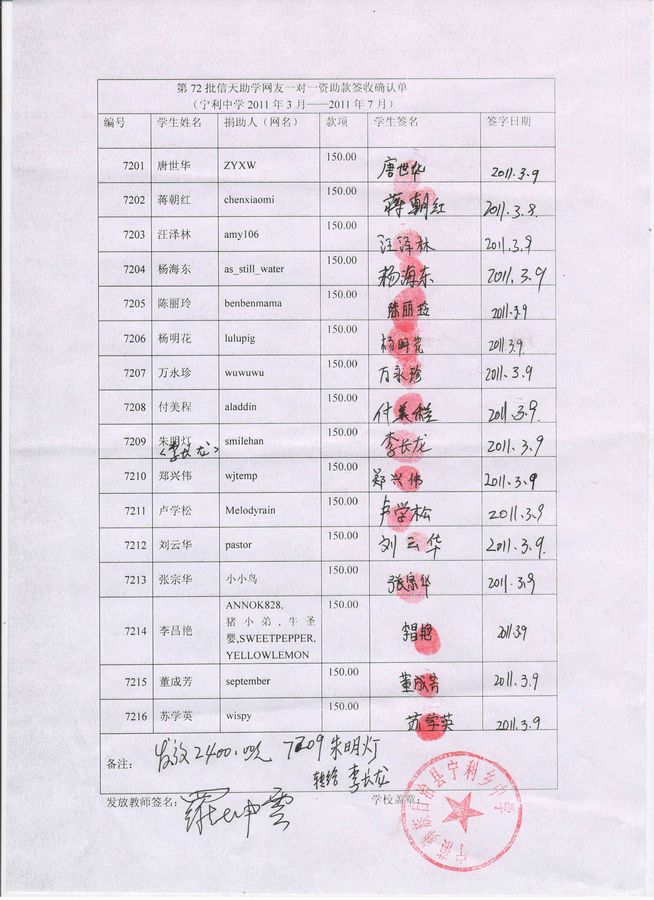 第 72 批信天助学网友一对一资助款签收确认单
(宁利中学 2011 年 3 月——2011 年 7 月)
编号 学生姓名 捐助人(网名) 款项 学生签名 签字日期
7201 唐世华 ZYXW 150.00 唐世华 2011.3.9
7202 蒋朝红 chenxiaomi 150.00 蒋朝红 2011.3.8.
7203 汪泽林 amy106 150.00 汪泽林 2011.3.9
7204 杨海东 as_still_water 150.00 杨海东 2011.3.9
7205 陈丽玲 benbenmama 150.00 陈丽玲 2011.3.9
7206 杨明花 lulupig 150.00 杨明花 2011.3.9.
7207 万永珍 wuwuwu 150.00 万永珍 2011.3.9
7208 付美程 aladdin 150.00 付美程 2011.3.9.
7209 朱明灯 smilehan 150.00 李长龙 2011.3.9
<李长龙>
7210 郑兴伟 wjtemp 150.00 郑兴伟 2011.3.9
7211 卢学松 Melodyrain 150.00 卢学松 2011.3.9
7212 刘云华 pastor 150.00 刘云华 2011.3.9.
7213 张宗华 小小鸟 150.00 张宗华 2011.3.9
7214 李昌艳 ANNOK828, 150.00 李昌艳 2011.3.9
猪小弟,牛圣
婴,SWEETPEPPER,
YELLOWLEMON
7215 董成芳 september 150.00 董成芳 2011.3.9
7216 苏学英 wispy 150.00 苏学英 2011.3.9
备注: 发放2400.00元 7209朱明灯
转给 李长龙
发放教师签名: 学校盖章:
宁蒗彝族自治县宁利乡中学